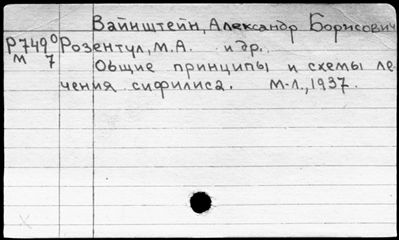 Вайнштейн, Александр Борисович
Р7490 Розентул, М.А. и др.
М 7 Общие принципы и схемы ле-
чения сифилиса. М.-Л., 1937.